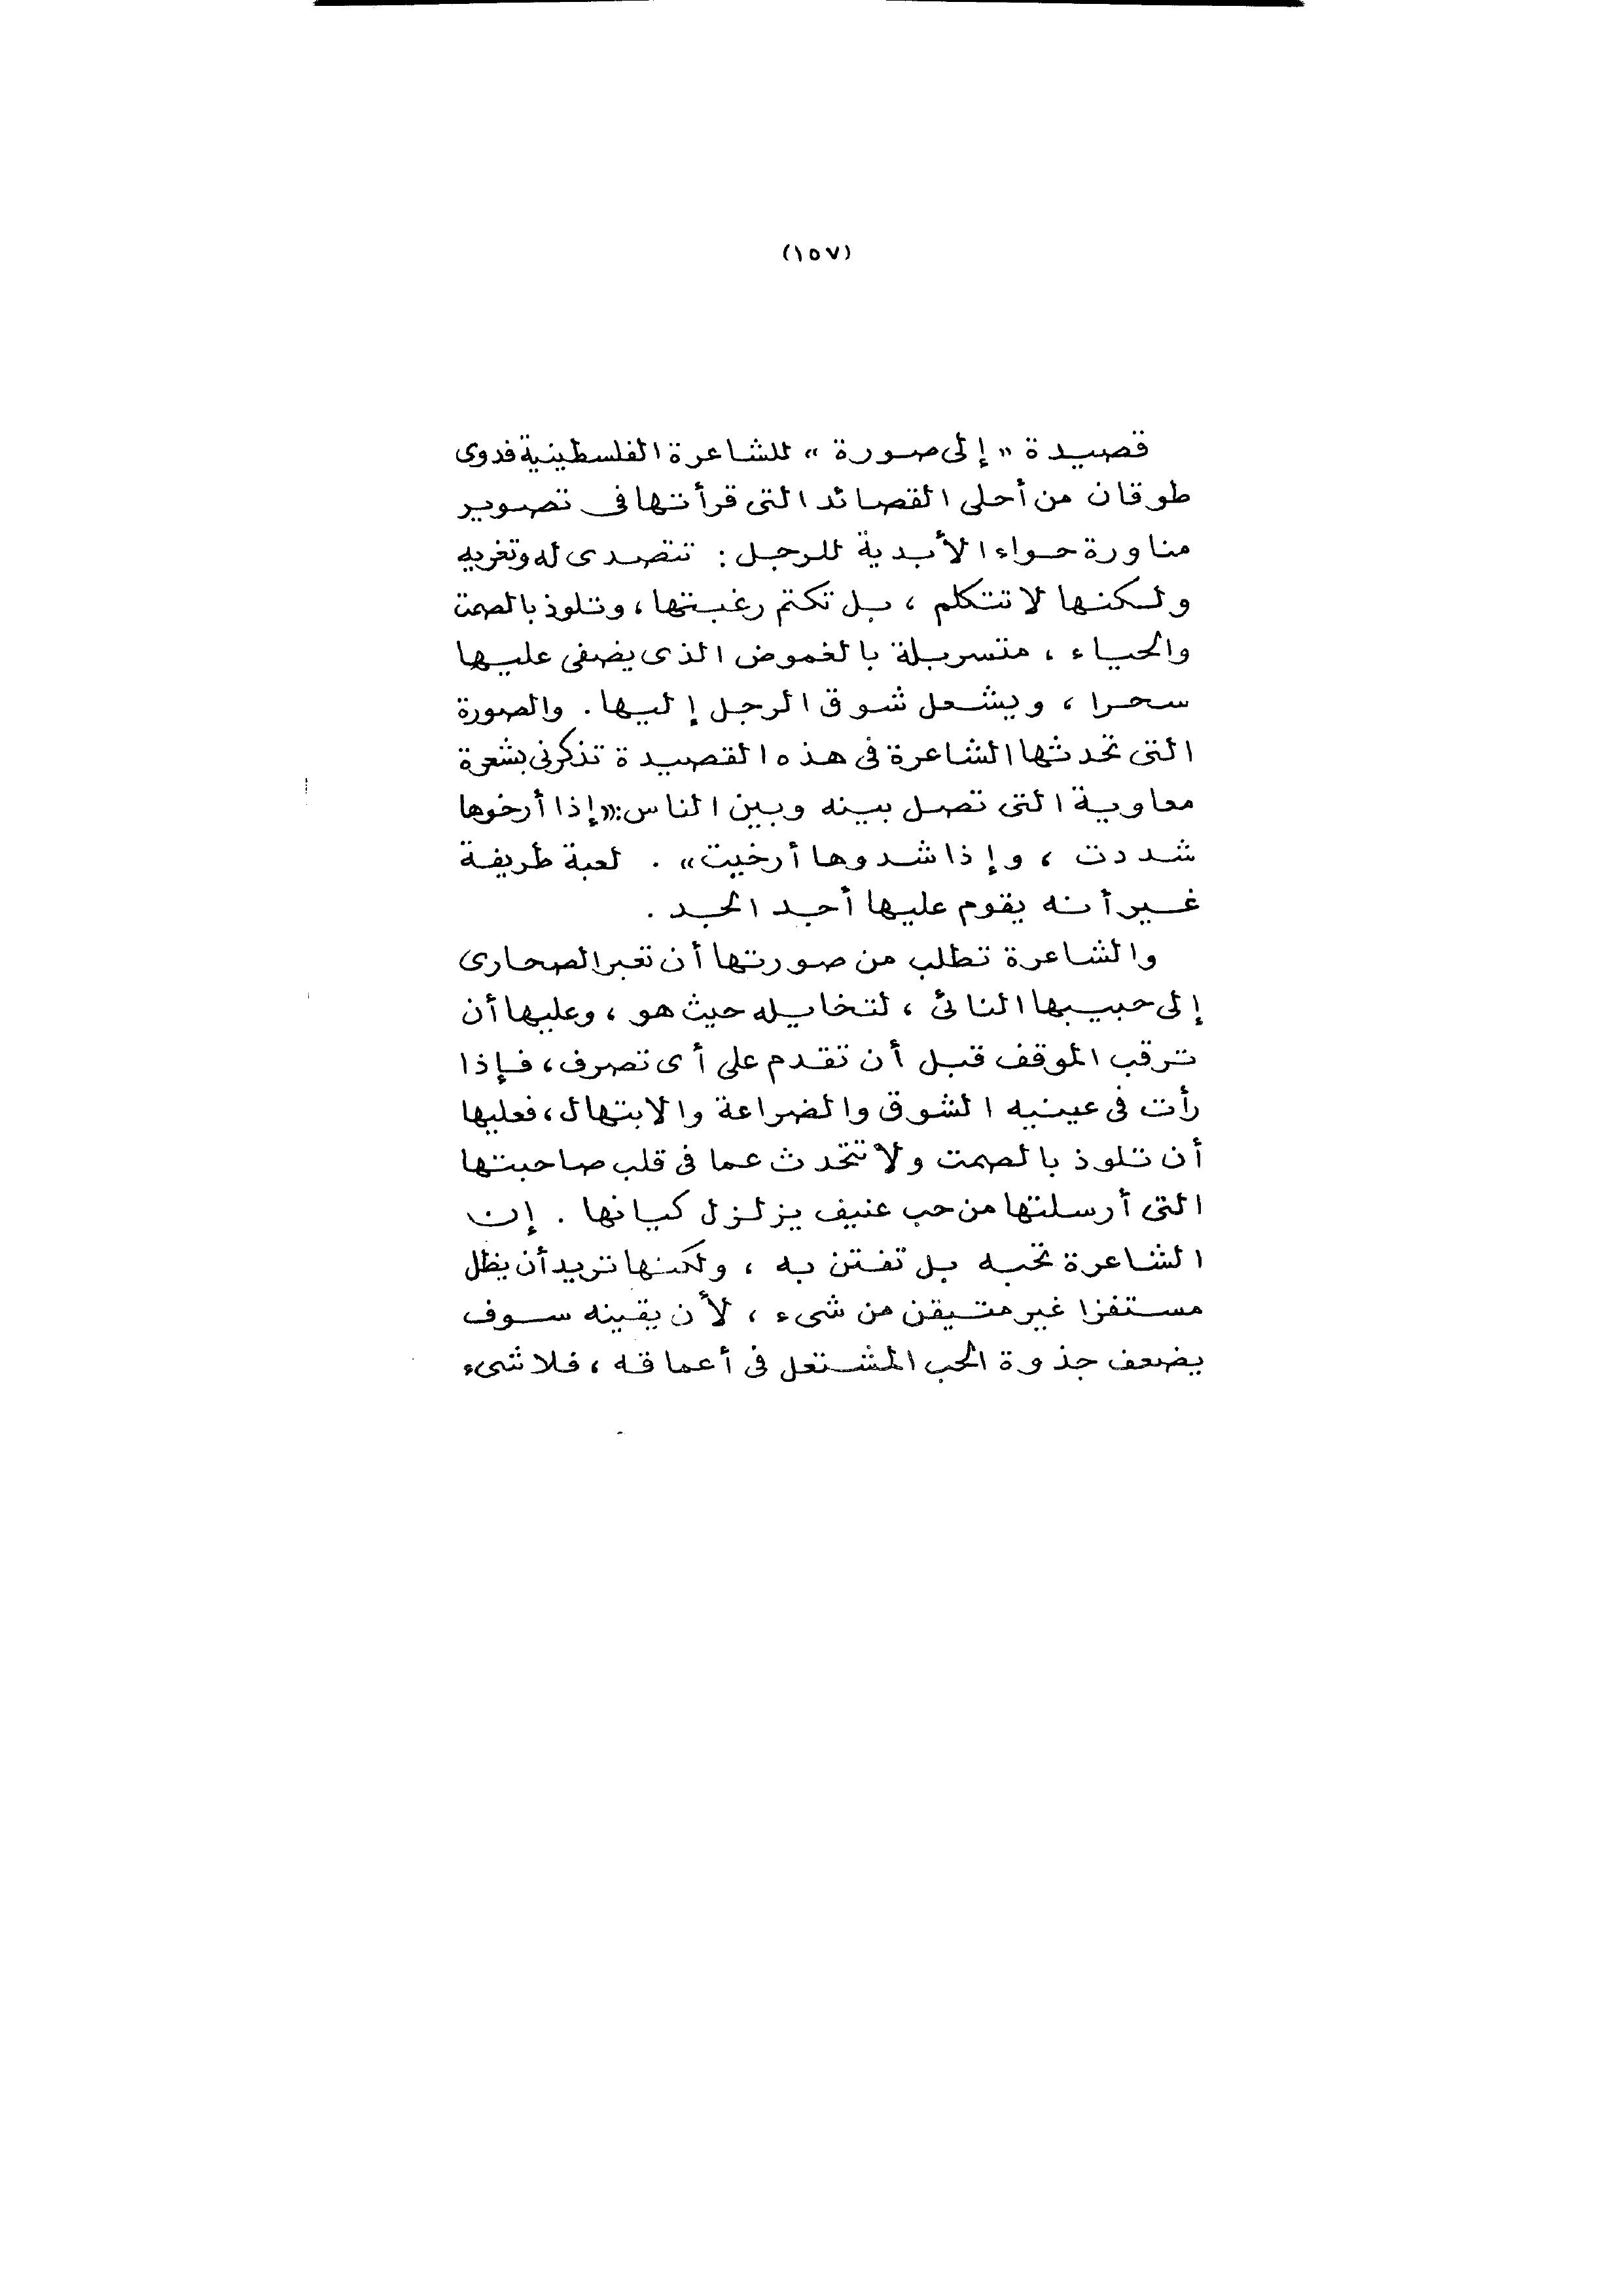 (١٥٧)
قصيدة «إلى صورة» للشاعرة الفلسطينية فدوى
طوقان من أحلى القصائد التى قرأتها فى تصوير
مناورة حواء الأبدية للرجل : تتصدى له وتغريه
ولكنها لا تتكلم ، بل تكتم رغبتها ، وتلوذ بالصمت
والحياء ، متسربلة بالغموض الذى يضفى عليها
سحرا ، ويشعل شوق الرجل إليها . والصورة
التى تحدثها الشاعرة فى هذه القصيدة تذكرنى بشعرة
معاوية التى تصل بينه وبين الناس : «إذا أرخوها
شددت ، وإذا شدوها أرخيت» . لعبة طريفة
غير أنه يقوم عليها أجد الجد .
والشاعرة تطلب من صورتها أن تعبر الصحارى
إلى حبيبها النائى ، لتخايله حيث هو ، وعليها أن
ترقب الموقف قبل أن تقدم على أى تصرف ، فإذا
رأت فى عينيه الشوق والضراعة والابتهال ، فعليها
أن تلوذ بالصمت ولا تتحدث عما فى قلب صاحبتها
التى أرسلتها من حب عنيف يزلزل كيانها . إن
الشاعرة تحبه بل تفتن به ، ولكنها تريد أن يظل
مستفزا غير متيقن من شىء ، لأن يقينه سوف
يضعف جذوة الحب المشتعل فى أعماقه ، فلا شىء